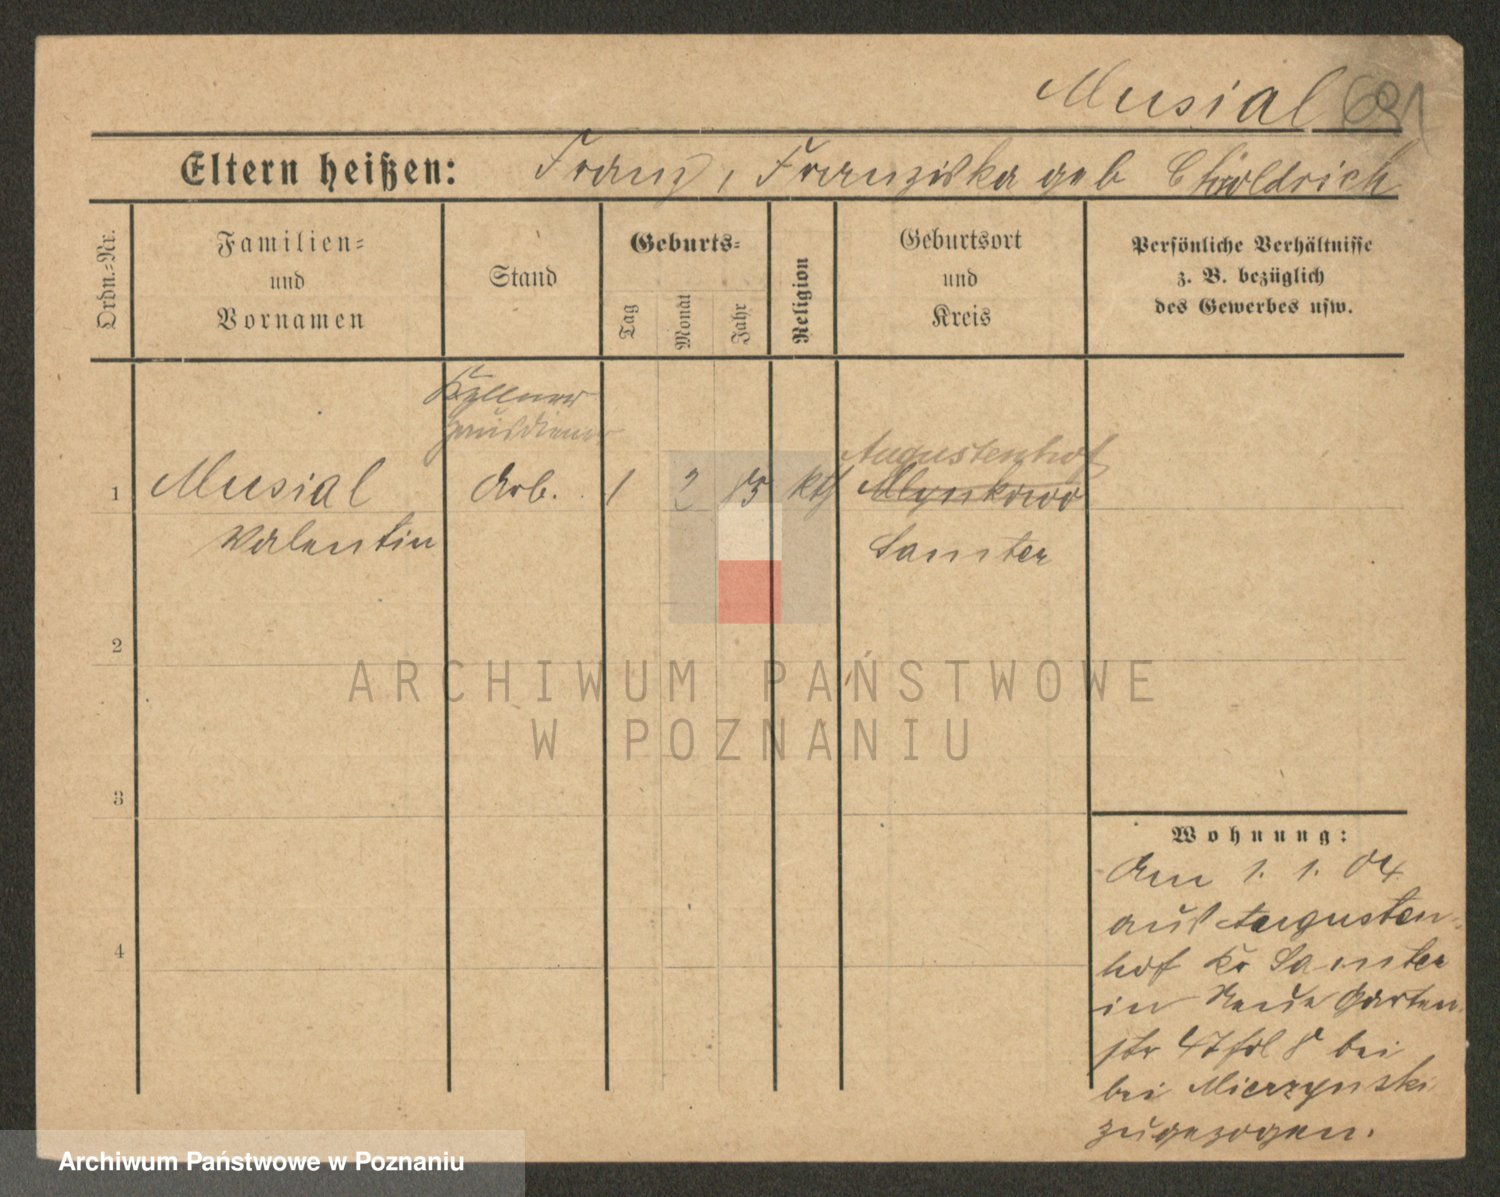 Musial 691
Eltern heißen: Franz, Franziska geb
Ordn.=Nr.
Familien=
und
Vornamen
Stand
Geburts=
Tag
Monat
Jahr
Religion
Geburtsort
und
Kreis
Persönliche Verhältnisse
z. B. bezüglich
des Gewerbes usw.
Kellner
Hausdiener
Augustenhof
1 Musial Arb. 1 2 85 kth Mlynkowo
Valentin Samter
2
3
4
Wohnung:
Am 1. 1. 04
aus Augusten-
hof Kr Samter
in Neue Garten
str 47 bei
bei Mierzynski
zugezogen.
ARCHIWUM PAŃSTWOWE
W POZNANIU
Archiwum Państwowe w Poznaniu